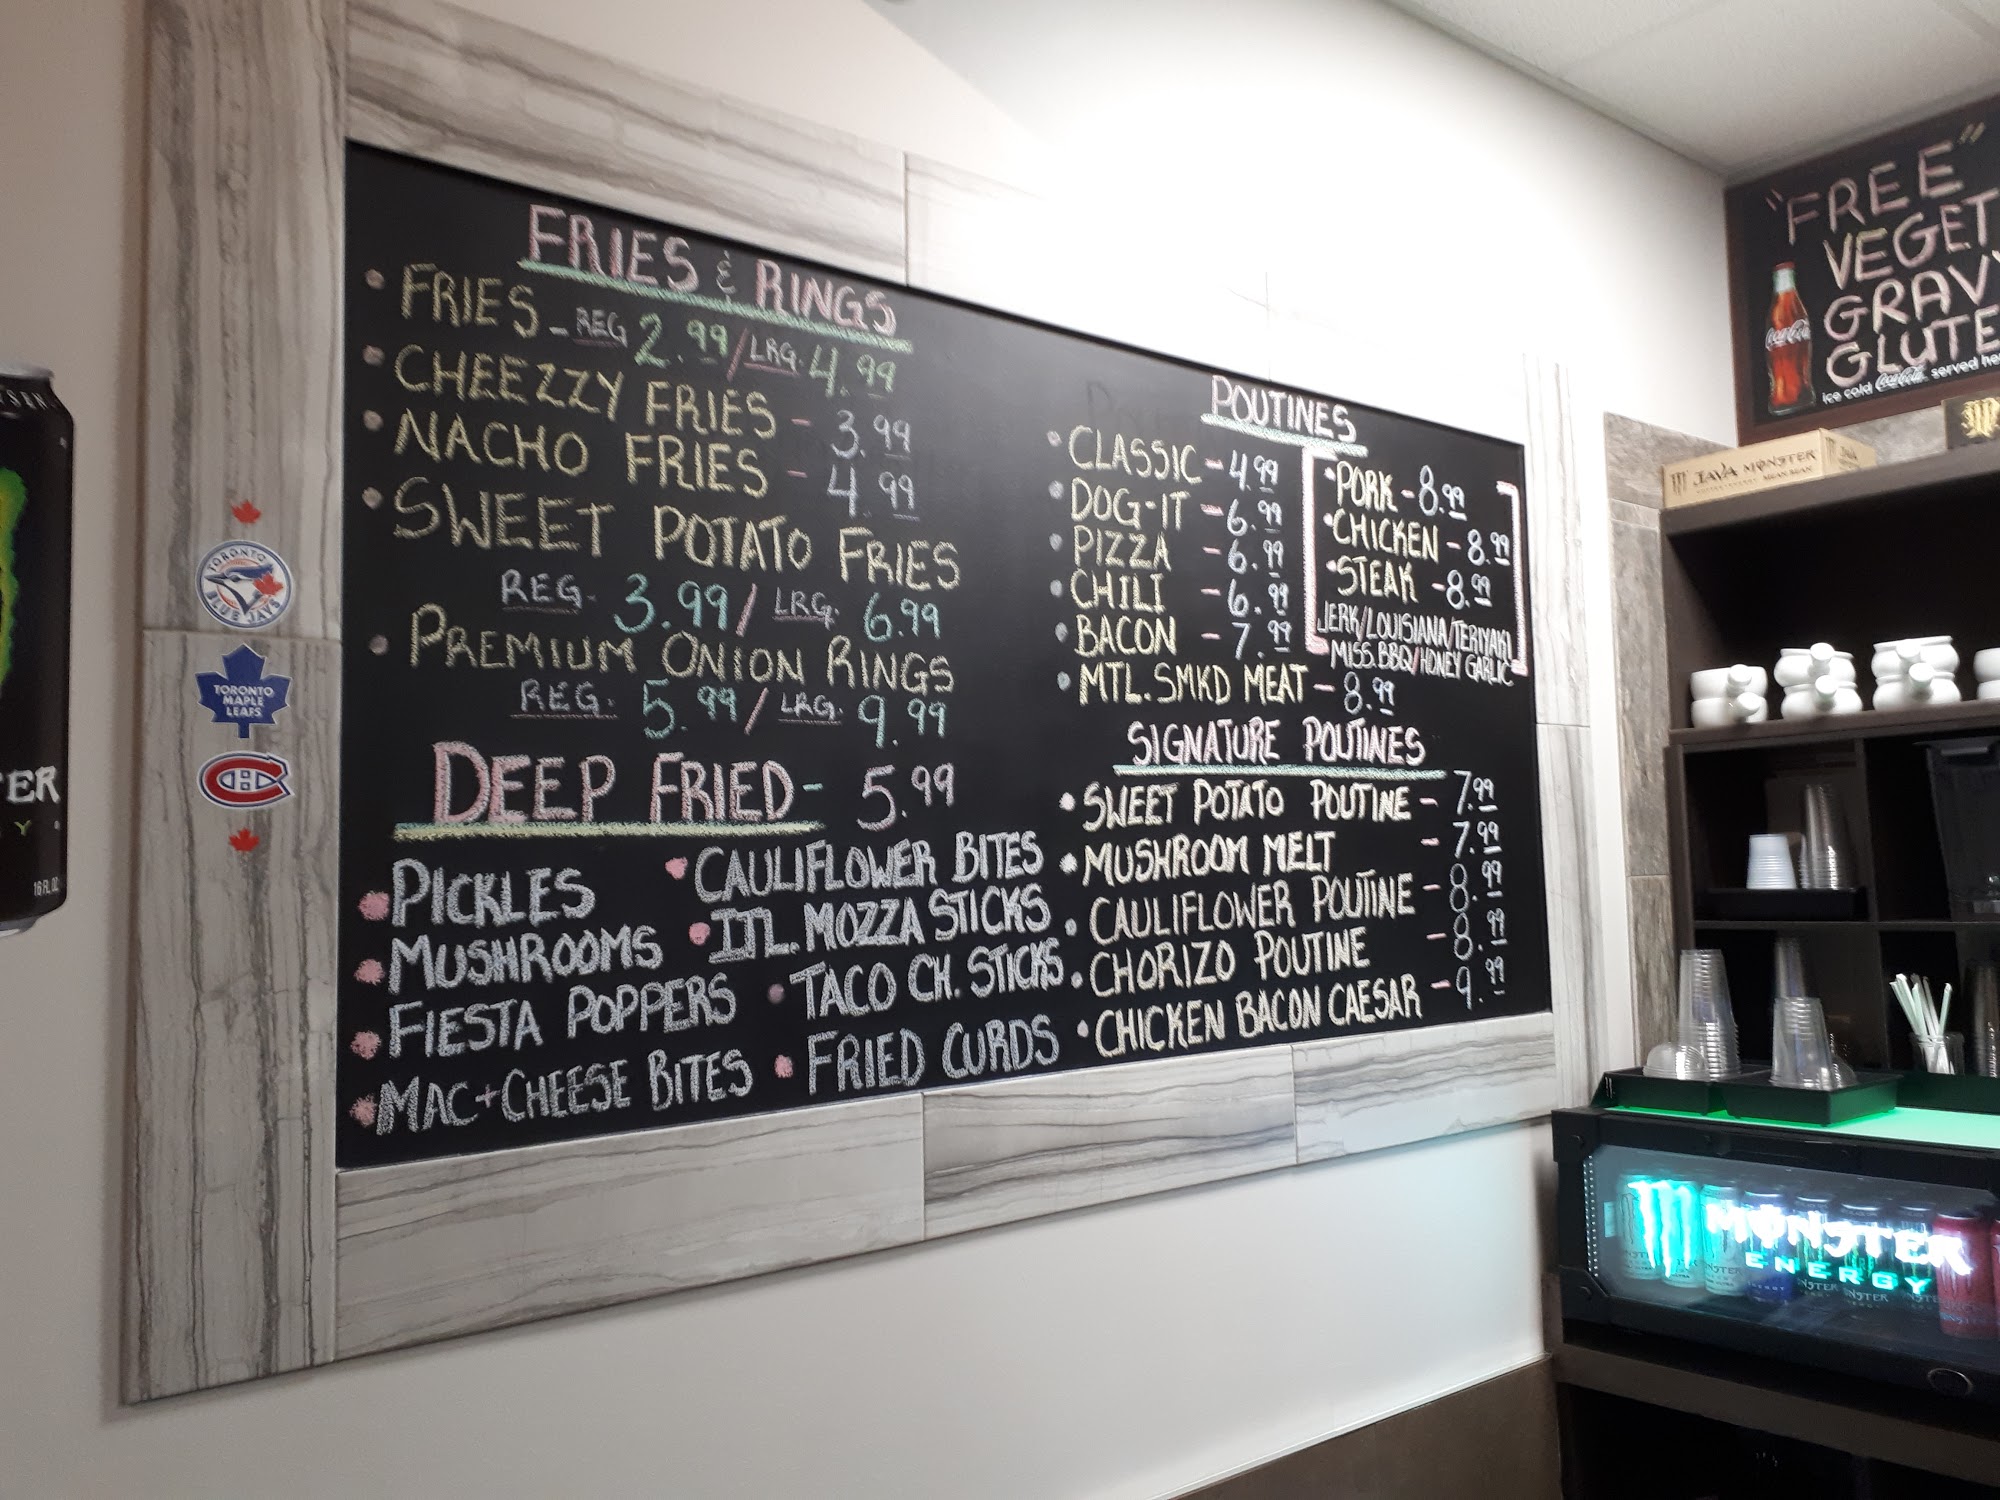 FRIES & RINGS
• FRIES - REG 2.99 / LRG. 4.99
• CHEEZZY FRIES - 3.99
• NACHO FRIES - 4.99
• SWEET POTATO FRIES
REG. 3.99 / LRG. 6.99
• PREMIUM ONION RINGS
REG. 5.99 / LRG. 9.99
DEEP FRIED - 5.99
• PICKLES
• MUSHROOMS
• FIESTA POPPERS
• MAC + CHEESE BITES
• CAULIFLOWER BITES
• ITL. MOZZA STICKS
• TACO CH. STICKS
• FRIED CURDS
POUTINES
• CLASSIC - 4.99
• DOG-IT - 6.99
• PIZZA - 6.99
• CHILI - 6.99
• BACON - 7.99
• MTL. SMKD MEAT - 8.99
• PORK - 8.99
• CHICKEN - 8.99
• STEAK - 8.99
JERK/LOUISIANA/TERIYAKI
MISS. BBQ/HONEY GARLIC
SIGNATURE POUTINES
• SWEET POTATO POUTINE - 7.99
• MUSHROOM MELT - 7.99
• CAULIFLOWER POUTINE - 8.99
• CHORIZO POUTINE - 8.99
• CHICKEN BACON CAESAR - 9.99
"FREE"
VEGET
GRAV
GLUTE
Coca-Cola
ice cold Coca-Cola served
JAVA MONSTER
MONSTER
ENERGY
TORONTO
BLUE JAYS
TORONTO
MAPLE
LEAFS
CH
TER
Y
16 FL OZ